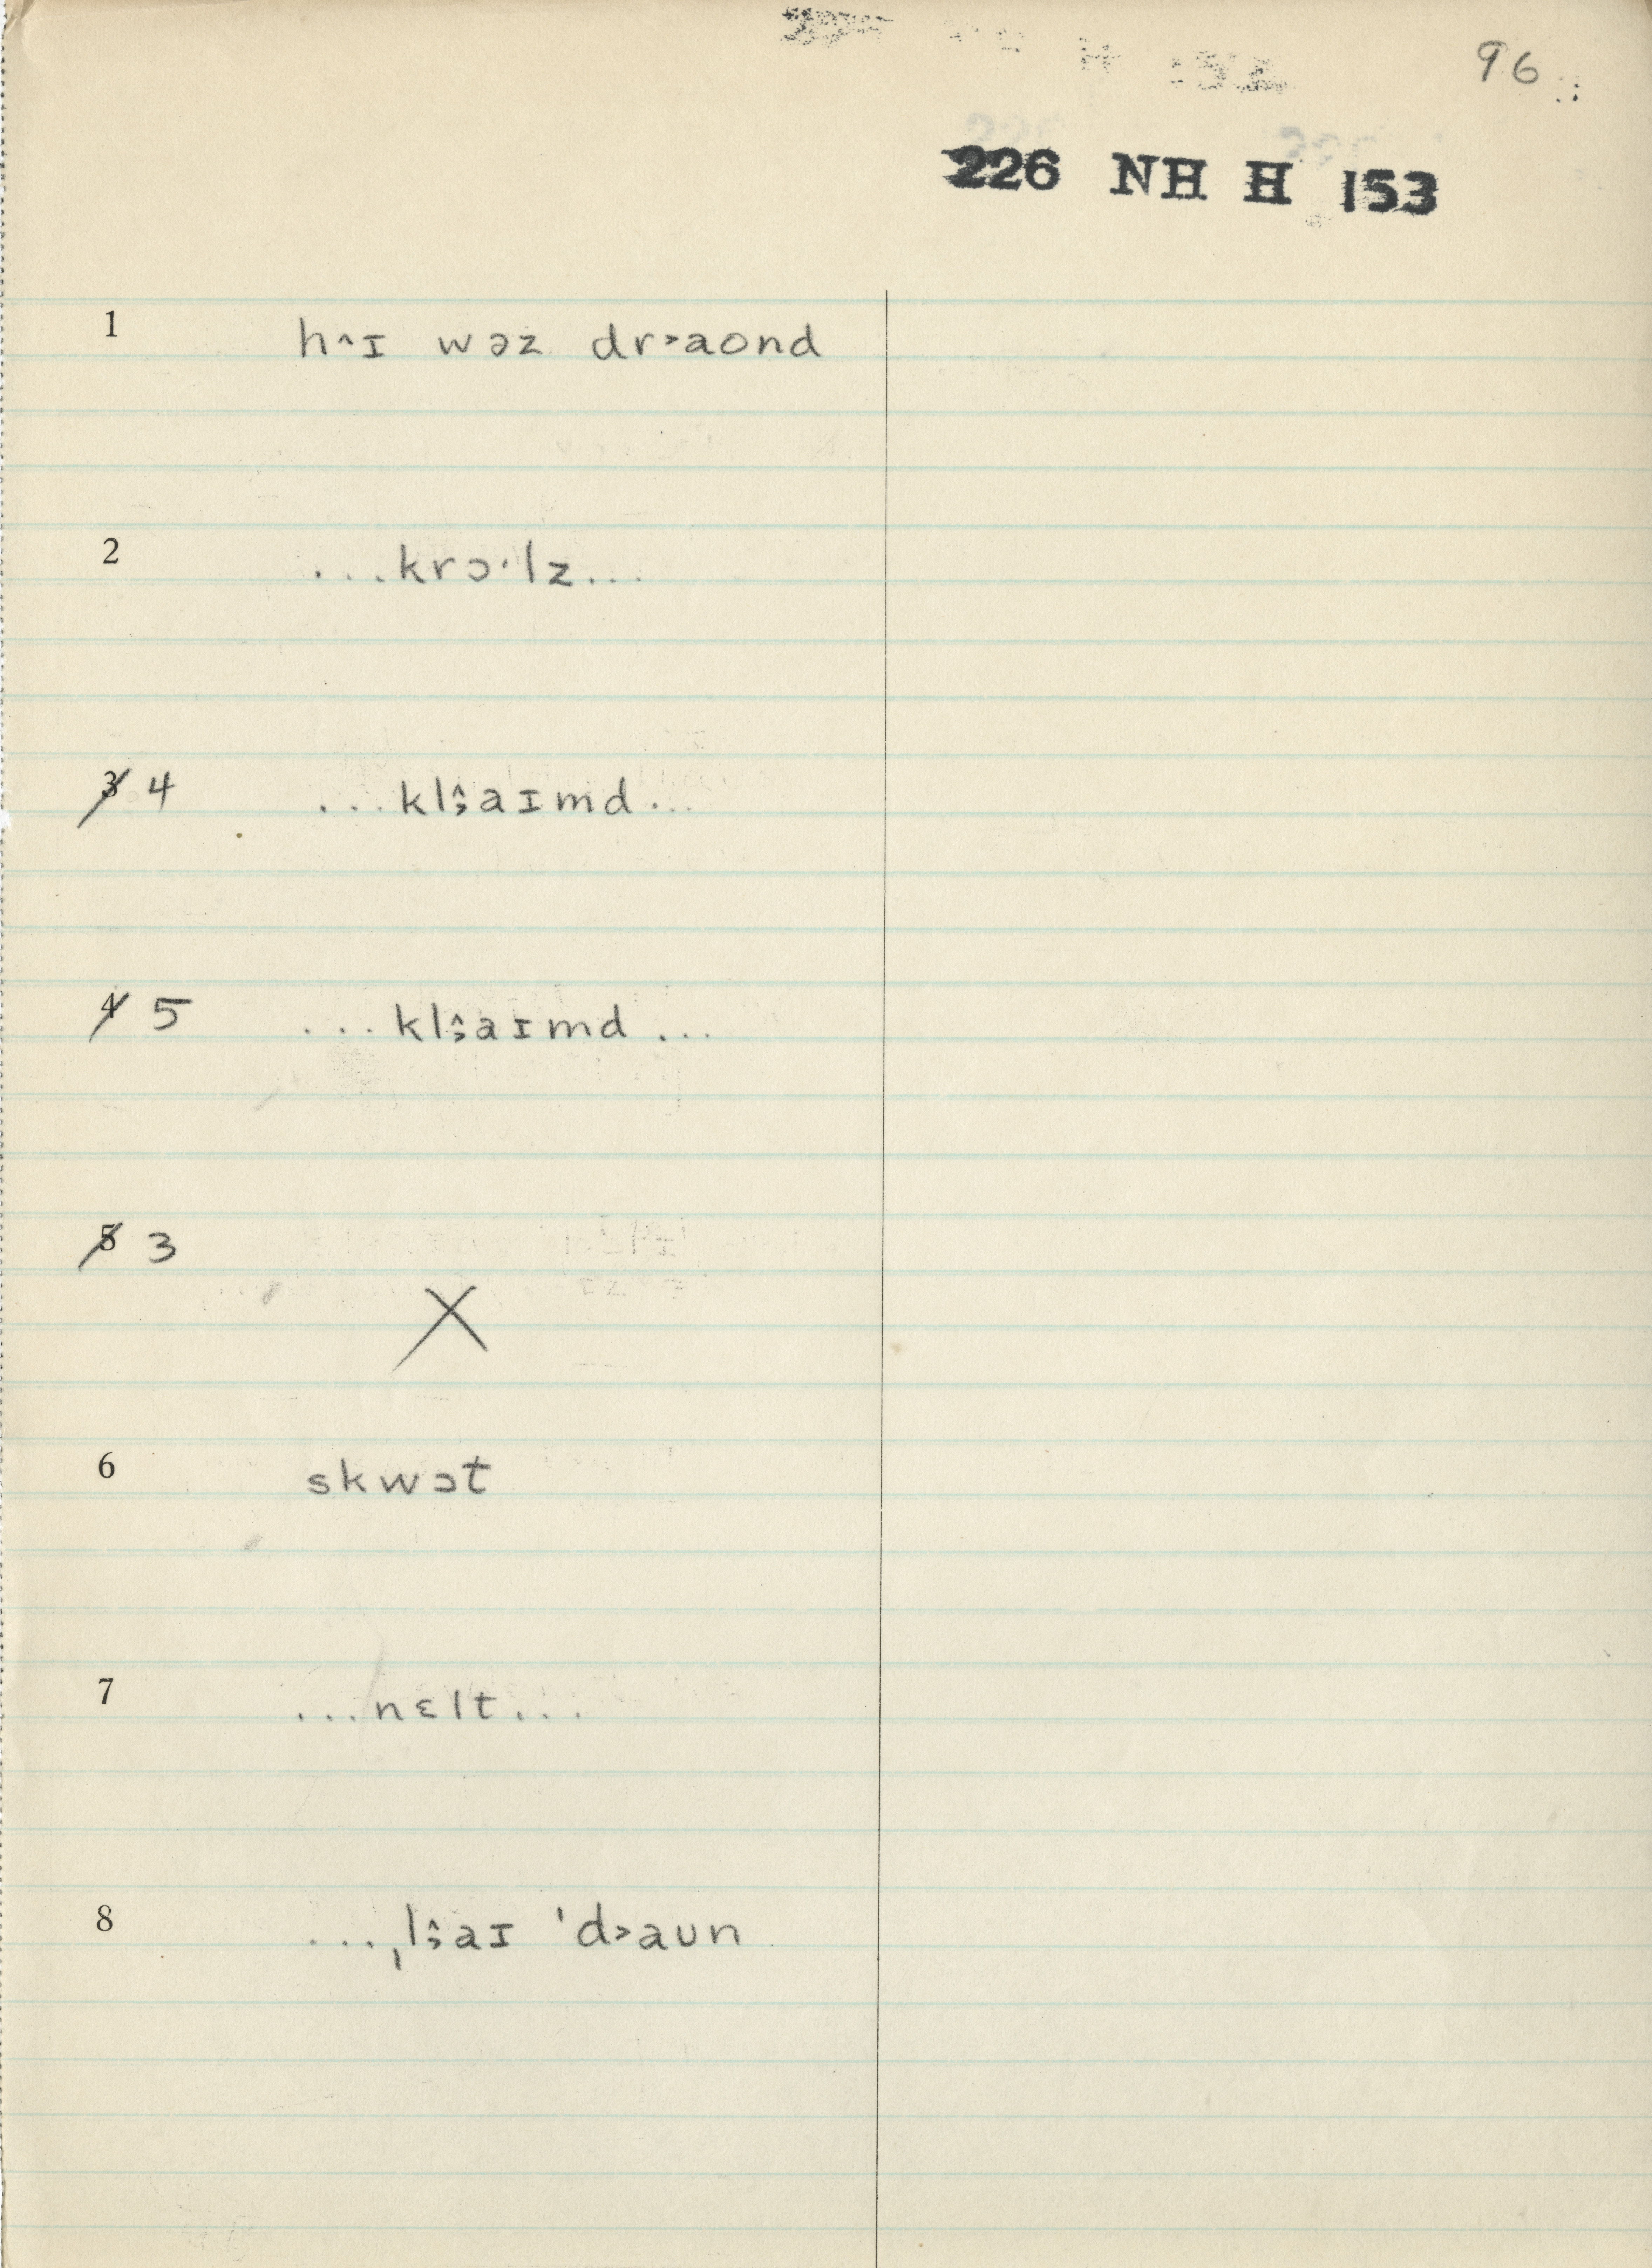 96
226 NH H 153
1 h˄ɪ wəz dr˃aond
2 ...krɔ·lz...
3 4 ...kl˄˒aɪmd...
4 5 ...kl˄˒aɪmd...
5 3
X
6 skwɔt
7 ...nɛlt...
8 ...ˌl˄˒aɪ ˈd˃aʊn